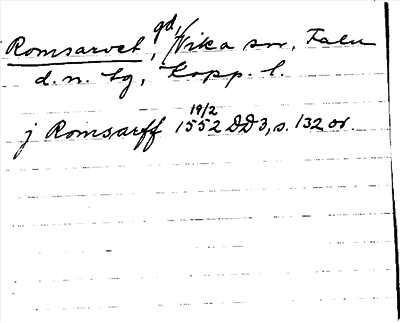 Romsarvet, gd, Vika sn, Falu
d. n. tg, Kopp. l.
j Romsarff 19/2 1552 DD3, s. 132 or.